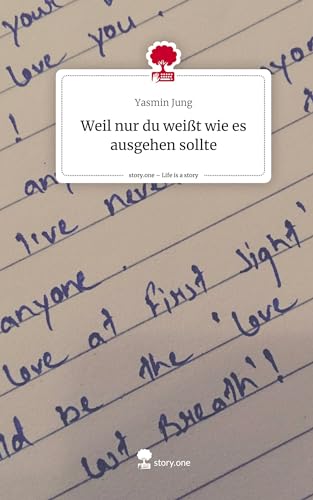 your
love you.
Yasmin Jung
Weil nur du weißt wie es
ausgehen sollte
story.one – Life is a story
!
live neve
anyone.
love at first sight'
ld be the 'love
last Breath'!
story.one